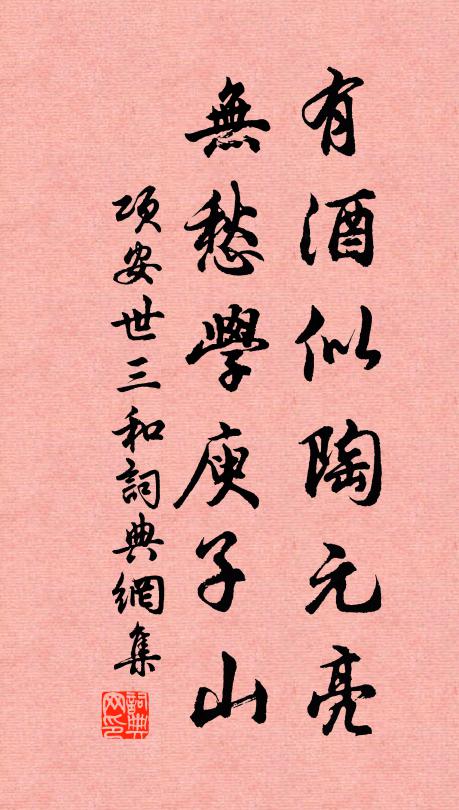 有酒似陶元亮
無愁學庾子山
項安世三和詞典網集
詞典網印